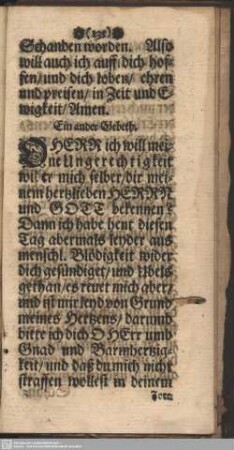 (131)
Schanden worden. Also
will auch ich auff dich hof-
fen/ und dich loben/ ehren
und preisen/ in Zeit und E-
wigkeit/ Amen.
Ein ander Gebeth.
O HERR ich will mei-
ne Ungerechtigkeit
wider mich selber/ dir mei-
nem hertzlieben HERRN
und GOTT bekennen:
Dann ich habe heut diesen
Tag abermals leyder aus
menschl. Blödigkeit wider
dich gesündiget/ und Übels
gethan/ es reuet mich aber/
und ist mir leyd von Grund
meines Hertzens/ darumb
bitte ich dich O HErr umb
Gnad und Barmhertzig-
keit/ und daß du mich nicht
straffen wollest in deinem
Zorn